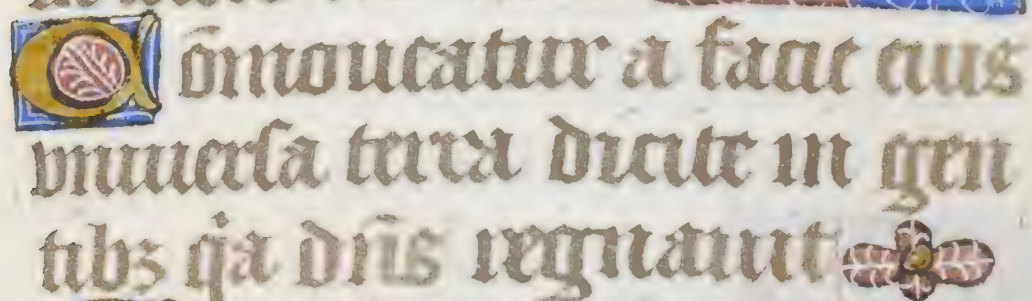 Cōmoueatur a facie eius
vniuersa terra dicite in gen
tibȝ q̇a dn̄s regnauit